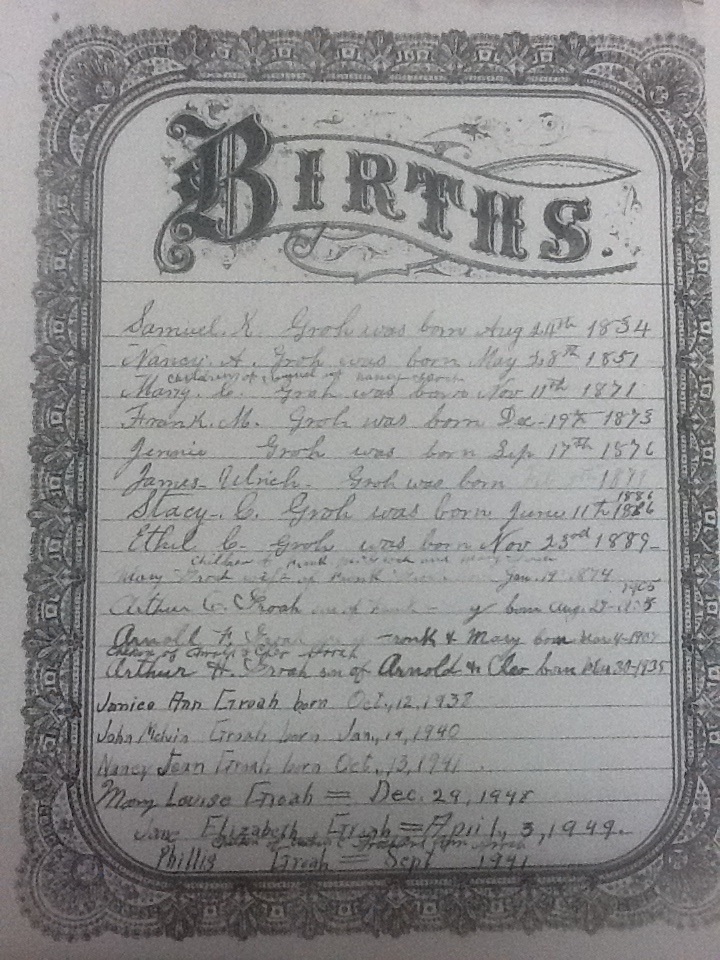 BIRTHS.
Samuel. K. Groh was born Aug 24th 1834
Nancy. A. Groh was born May 28th 1851
children of Samuel nancy
Mary. C. Groh was born Nov 11th 1871
Frank. M. Groh was born Dec-19th 1873
Jennie Groh was born Sep 17th 1876
James-Ulrich- Groh was born
1886
Stacy-C. Groh was born June 11th 1886
Ethel C- Groh was born Nov 23rd 1889-
children of Frank and Mary
Mary Groah wife of Frank Jan. 19 1874
1905
Arthur C. Groah born Aug. 29-
Arnold Groah Frank & Mary born Mar 4-1907
Children of Arnold & Cleo Groah
Arthur H. Groah son of Arnold & Cleo born 30-1935
Janice Ann Groah born Oct., 12, 1938
John Melvin Groah born Jan., 19, 1940
Nancy Jean Groah born Oct., 13, 1941
Mary Louise Groah = Dec. 29, 1948
Jane Elizabeth Groah = April, 3, 1949-
Children of Ann Groah
Phillis Groah = Sept 1941